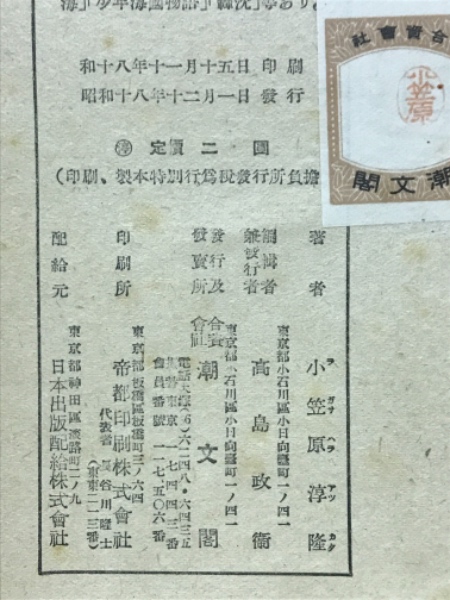 海」「少年海國物語」「轟沈」等あり。
和十八年十一月十五日印刷
昭和十八年十二月一日發行
定價二圓
(印刷、製本特別行爲税發行所負擔
合資會社
小笠原
潮文閣
著者
東京都小石川區小日向臺町一ノ四一
小笠原淳隆
ヲガサハラアツタカ
編輯者
兼發行者
東京都小石川區小日向臺町一ノ四一
高島政衞
發行及
發賣所
東京都小石川區小日向臺町一ノ四一
合資
會社
潮文閣
電話大塚(86)六二四八・六四三五
振替東京一七四四三番
會員番號一一七五〇六番
印刷所
東京都板橋區板橋町三ノ六四
帝都印刷株式會社
代表者 長谷川隆士
(東東二一三番)
配給元
東京都神田區淡路町二ノ九
日本出版配給株式會社